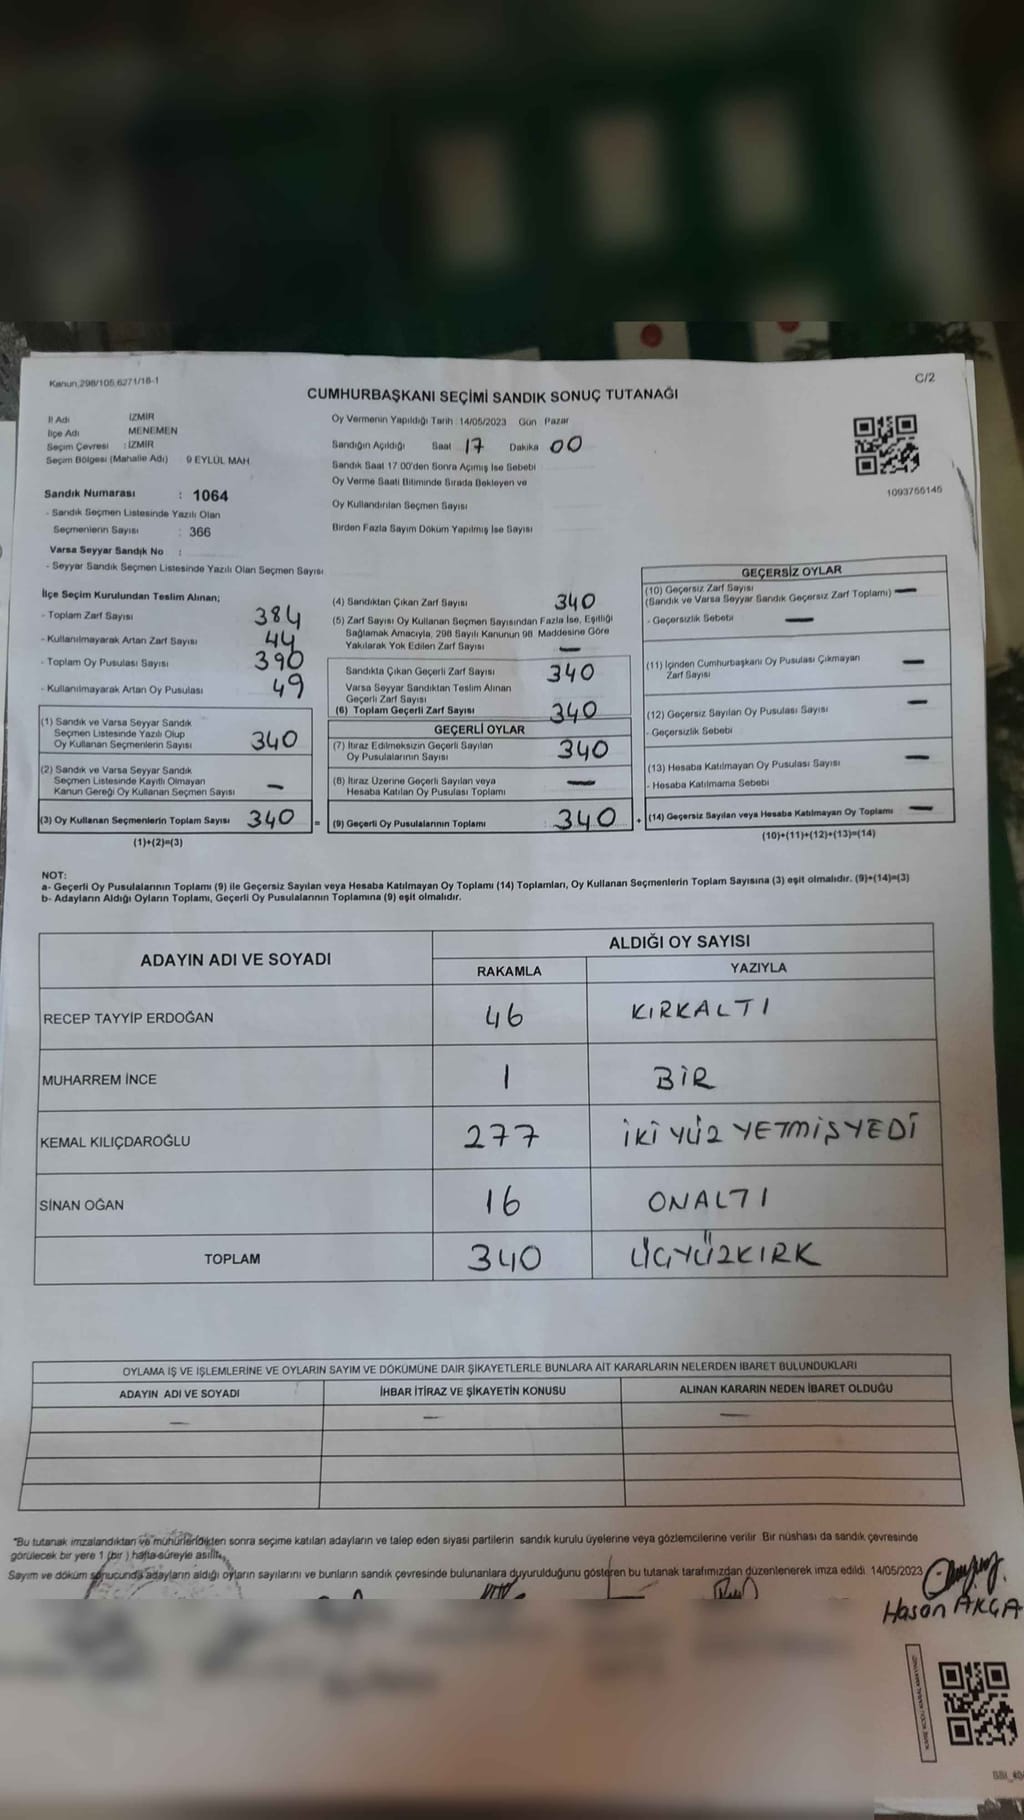 Kanun,298/105,6271/18-1
C/2
CUMHURBAŞKANI SEÇİMİ SANDIK SONUÇ TUTANAĞI
İl Adı İZMİR
İlçe Adı MENEMEN
Seçim Çevresi : İZMİR
Seçim Bölgesi (Mahalle Adı) 9 EYLÜL MAH.
Sandık Numarası : 1064
- Sandık Seçmen Listesinde Yazılı Olan
Seçmenlerin Sayısı : 366
Varsa Seyyar Sandık No :
- Seyyar Sandık Seçmen Listesinde Yazılı Olan Seçmen Sayısı
Oy Vermenin Yapıldığı Tarih : 14/05/2023 Gün Pazar
Sandığın Açıldığı Saat 17 Dakika 00
Sandık Saat 17 00'den Sonra Açılmış İse Sebebi
Oy Verme Saati Bitiminde Sırada Bekleyen ve
Oy Kullandırılan Seçmen Sayısı
Birden Fazla Sayım Döküm Yapılmış İse Sayısı
1093756145
İlçe Seçim Kurulundan Teslim Alınan;
- Toplam Zarf Sayısı 384
- Kullanılmayarak Artan Zarf Sayısı 44
- Toplam Oy Pusulası Sayısı 390
- Kullanılmayarak Artan Oy Pusulası 49
(1) Sandık ve Varsa Seyyar Sandık
Seçmen Listesinde Yazılı Olup
Oy Kullanan Seçmenlerin Sayısı 340
(2) Sandık ve Varsa Seyyar Sandık
Seçmen Listesinde Kayıtlı Olmayan
Kanun Gereği Oy Kullanan Seçmen Sayısı -
(3) Oy Kullanan Seçmenlerin Toplam Sayısı 340 =
(1)+(2)=(3)
(4) Sandıktan Çıkan Zarf Sayısı 340
(5) Zarf Sayısı Oy Kullanan Seçmen Sayısından Fazla İse, Eşitliği
Sağlamak Amacıyla, 298 Sayılı Kanunun 98 Maddesine Göre
Yakılarak Yok Edilen Zarf Sayısı -
Sandıkta Çıkan Geçerli Zarf Sayısı 340
Varsa Seyyar Sandıktan Teslim Alınan
Geçerli Zarf Sayısı
(6) Toplam Geçerli Zarf Sayısı 340
GEÇERLİ OYLAR
(7) İtiraz Edilmeksizin Geçerli Sayılan
Oy Pusulalarının Sayısı 340
(8) İtiraz Üzerine Geçerli Sayılan veya
Hesaba Katılan Oy Pusulası Toplamı -
(9) Geçerli Oy Pusulalarının Toplamı : 340 +
GEÇERSİZ OYLAR
(10) Geçersiz Zarf Sayısı
(Sandık ve Varsa Seyyar Sandık Geçersiz Zarf Toplamı) -
- Geçersizlik Sebebi -
(11) İçinden Cumhurbaşkanı Oy Pusulası Çıkmayan
Zarf Sayısı -
(12) Geçersiz Sayılan Oy Pusulası Sayısı -
- Geçersizlik Sebebi
(13) Hesaba Katılmayan Oy Pusulası Sayısı -
- Hesaba Katılmama Sebebi
(14) Geçersiz Sayılan veya Hesaba Katılmayan Oy Toplamı -
(10)+(11)+(12)+(13)=(14)
NOT:
a- Geçerli Oy Pusulalarının Toplamı (9) ile Geçersiz Sayılan veya Hesaba Katılmayan Oy Toplamı (14) Toplamları, Oy Kullanan Seçmenlerin Toplam Sayısına (3) eşit olmalıdır. (9)+(14)=(3)
b- Adayların Aldığı Oyların Toplamı, Geçerli Oy Pusulalarının Toplamına (9) eşit olmalıdır.
ADAYIN ADI VE SOYADI
ALDIĞI OY SAYISI
RAKAMLA YAZIYLA
RECEP TAYYİP ERDOĞAN 46 KIRKALTI
MUHARREM İNCE 1 BİR
KEMAL KILIÇDAROĞLU 277 İKİ YÜZ YETMİŞYEDİ
SİNAN OĞAN 16 ONALTI
TOPLAM 340 ÜÇYÜZKIRK
OYLAMA İŞ VE İŞLEMLERİNE VE OYLARIN SAYIM VE DÖKÜMÜNE DAİR ŞİKAYETLERLE BUNLARA AİT KARARLARIN NELERDEN İBARET BULUNDUKLARI
ADAYIN ADI VE SOYADI İHBAR İTİRAZ VE ŞİKAYETİN KONUSU ALINAN KARARIN NEDEN İBARET OLDUĞU
- - -
"Bu tutanak imzalandıktan ve mühürlendikten sonra seçime katılan adayların ve talep eden siyasi partilerin sandık kurulu üyelerine veya gözlemcilerine verilir Bir nüshası da sandık çevresinde
görülecek bir yere 1 (bir ) hafta süreyle asılır.
Sayım ve döküm sonucunda adayların aldığı oyların sayılarını ve bunların sandık çevresinde bulunanlara duyurulduğunu gösteren bu tutanak tarafımızdan düzenlenerek imza edildi 14/05/2023
Hasan AKÇA